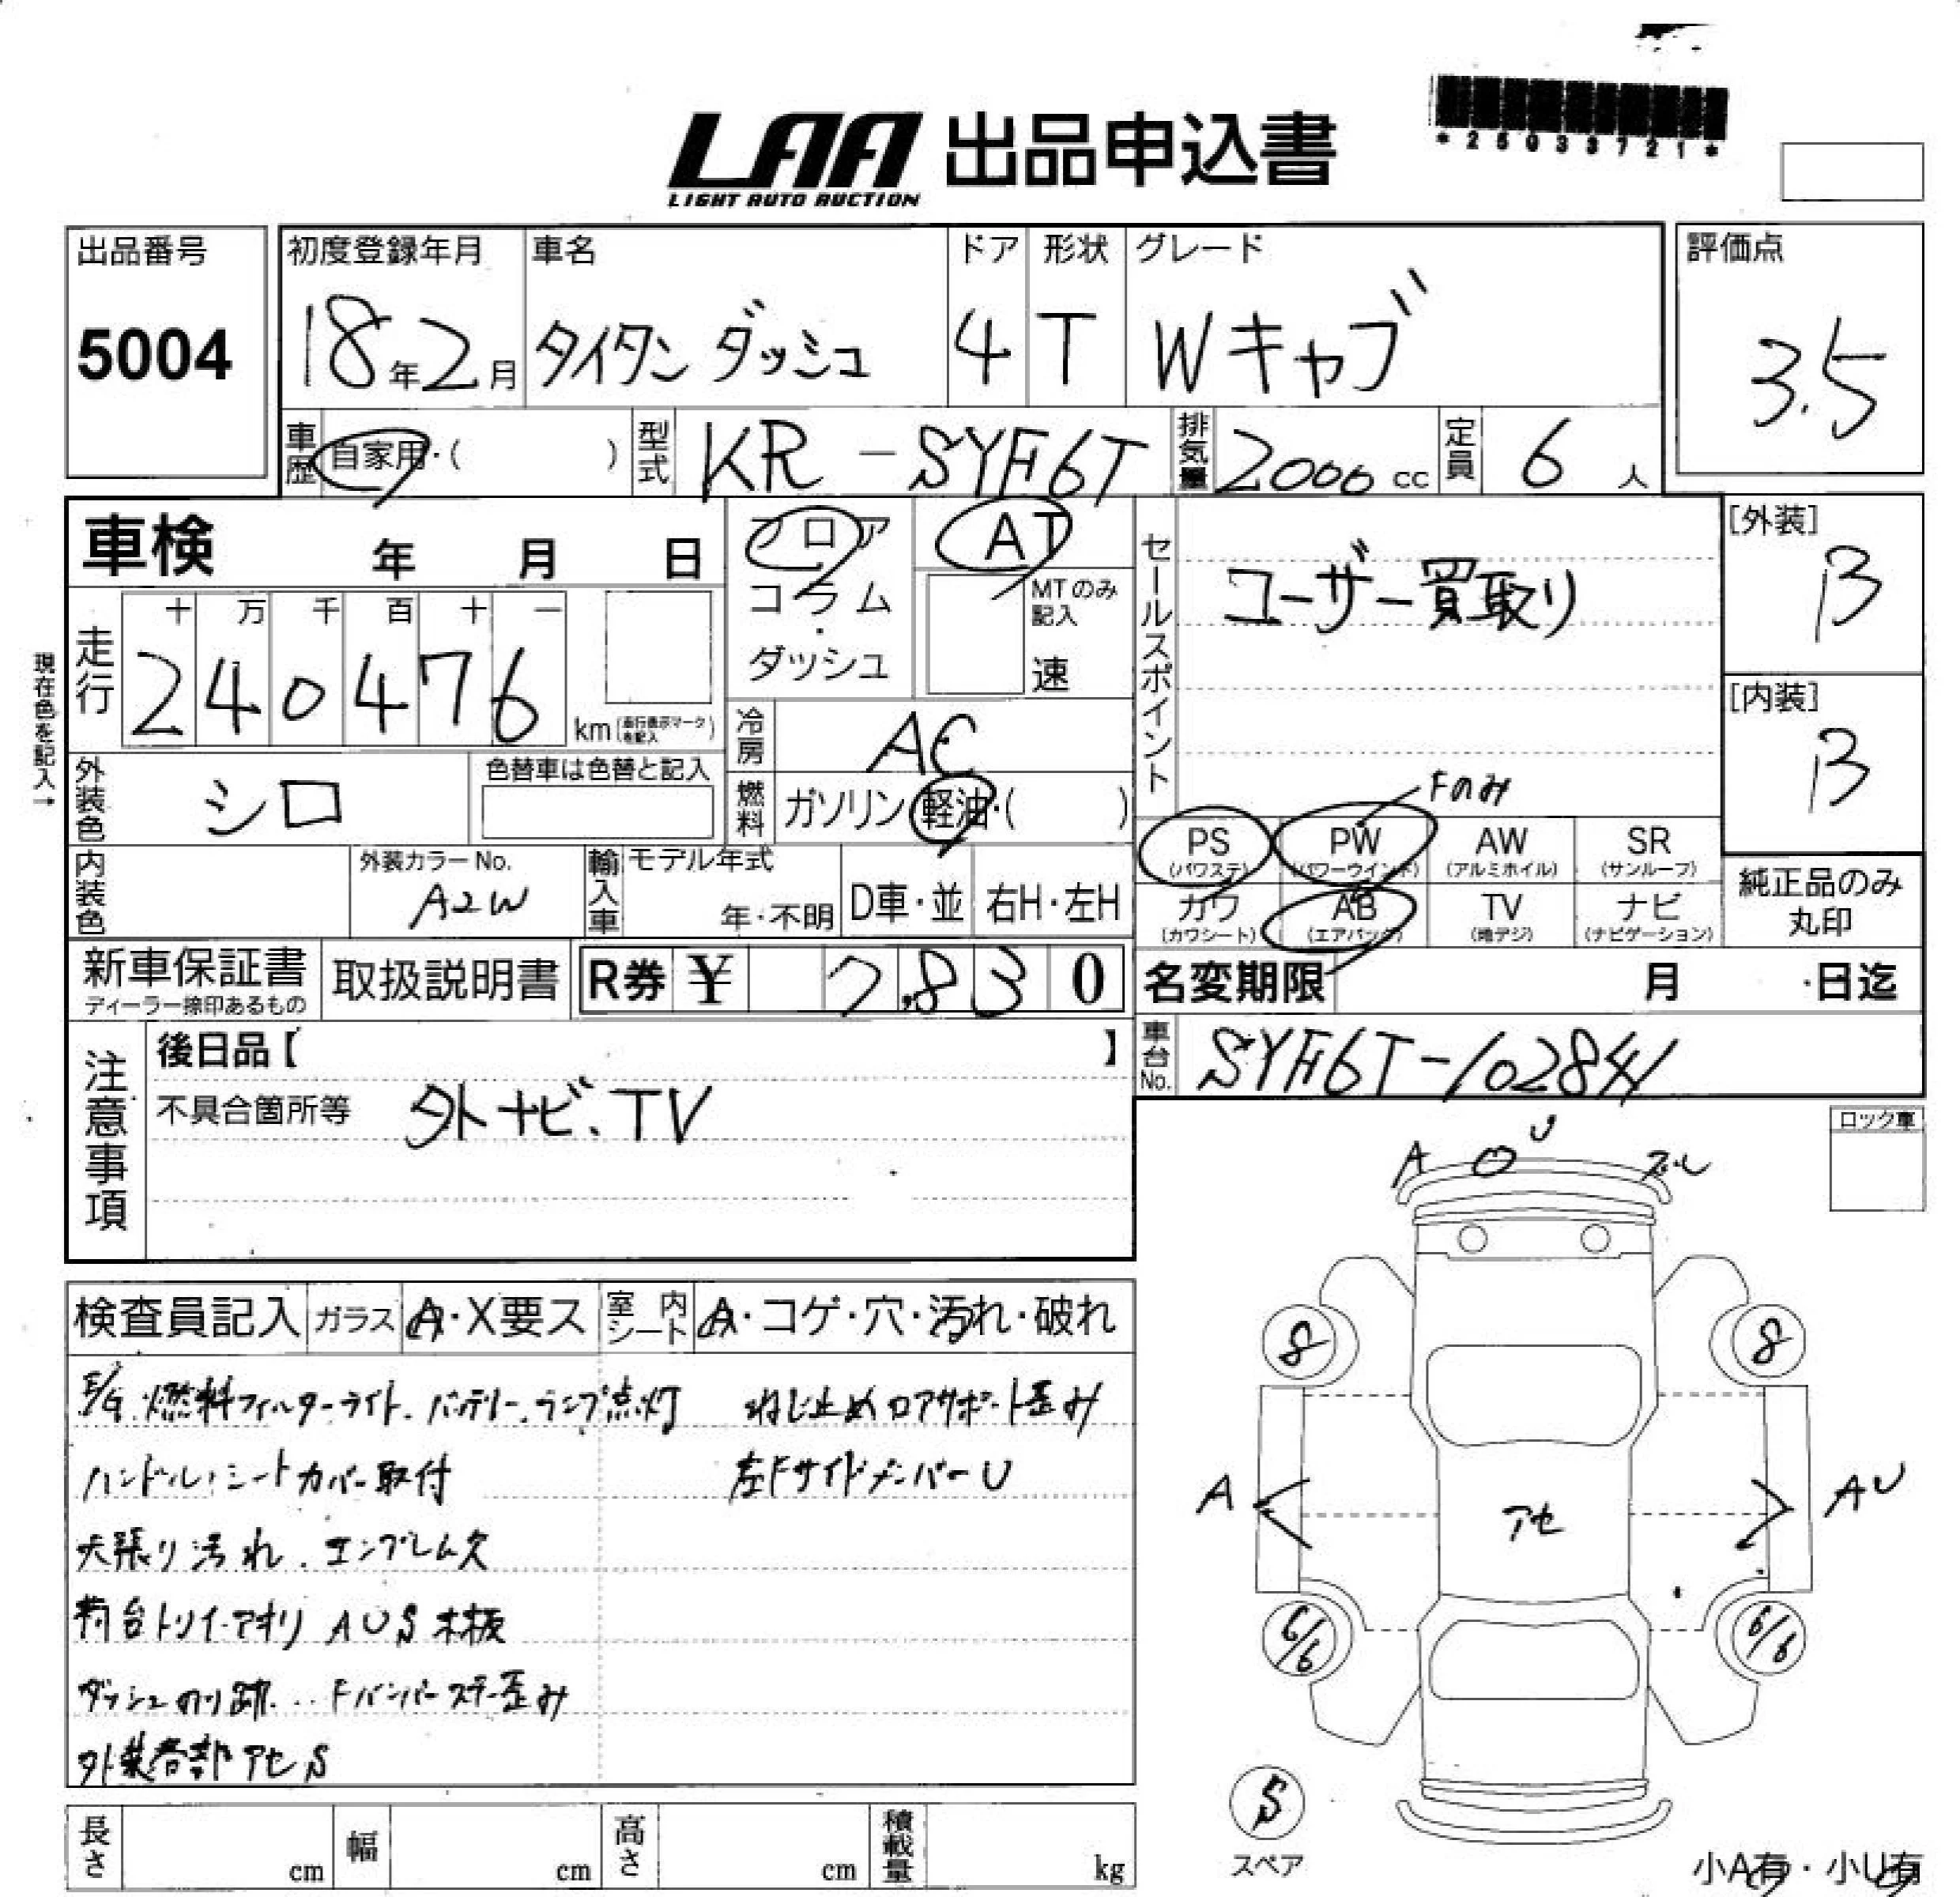 LAA 出品申込書
LIGHT AUTO AUCTION
*25033721*
出品番号
5004
初度登録年月
18年2月
車名
タイタン ダッシュ
ドア
4
形状
T
グレード
Wキャブ
評価点
3.5
車歴 自家用・( )
型式 KR-SYF6T
排気量 2000 cc
定員 6 人
車検 年 月 日
フロア
コラム
・
ダッシュ
AT
MTのみ記入
速
セールスポイント
ユーザー買取り
[外装]
B
[内装]
B
現在色を記入→
走行
十 万 千 百 十 一
2 4 0 4 7 6
km(走行表示マークを記入)
冷房 AC
燃料 ガソリン・軽油・( )
外装色 シロ
色替車は色替と記入
内装色
外装カラーNo.
A2W
輸入車
モデル年式
年・不明
D車・並
右H・左H
Fのみ
PS (パワステ)
PW (パワーウインド)
AW (アルミホイル)
SR (サンルーフ)
カワ (カワシート)
AB (エアバック)
TV (地デジ)
ナビ (ナビゲーション)
純正品のみ
丸印
新車保証書
ディーラー捺印あるもの
取扱説明書
R券 ¥ 7,830
名変期限 月 日迄
車台No. SYF6T-102841
注意事項
後日品【 】
不具合箇所等 外ナビ、TV
ロック車
検査員記入
ガラス A・X要ス
室内シート A・コゲ・穴・汚れ・破れ
E/G.燃料フィルターライト.バッテリー.ランプ点灯
ハンドル,シートカバー取付
天張り汚れ.エンブレム欠
荷台トリイ.アオリ AUS木板
ダッシュのり跡.. Fバンパーステー歪み
外装各部アセS
ねじ止めロアサポート歪み
左FサイドメンバーU
A U ズレ
8 8
A アセ AU
6/6 6/6
S
スペア
小A有・小U有
長さ cm
幅 cm
高さ cm
積載量 kg